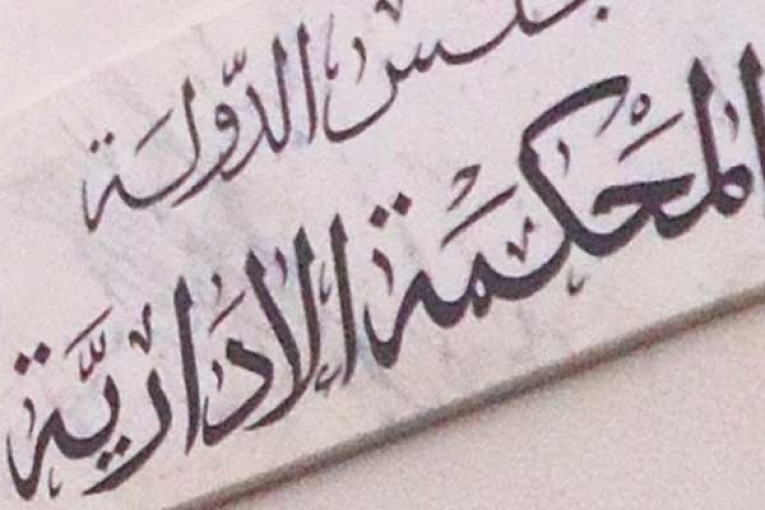 مجلس الدّولة
المحكمة الادارية